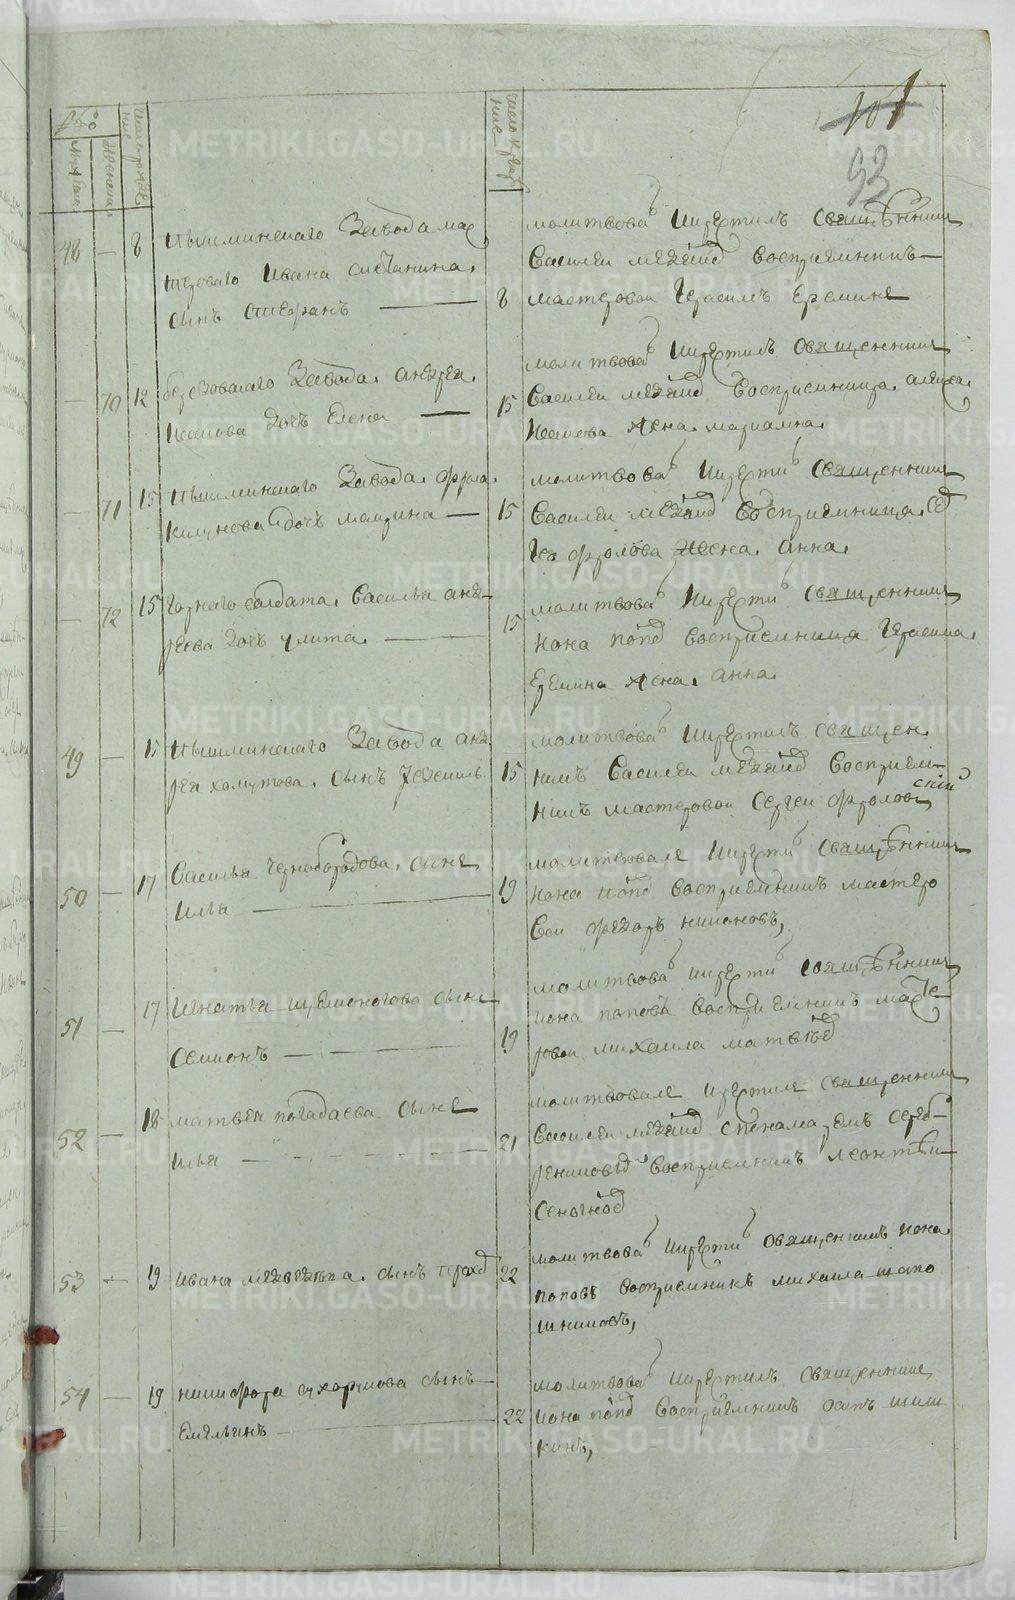 101
93
число рожде
число крещ
48 — 8 Пышминскаго Завода мас
терового Ивана сметанина
сынъ Стефанъ
8
молитвова и крестилъ священник
Василеи воспрiемникъ
мастеровои Герасимъ Еремине
— 70 12 березовскаго Завода андрея
Иванова дочь Елена
15
молитвова и крестилъ священник
Василеи воспрiемница
жена марианна
— 71 15 Пышминскаго Завода фрола
дочь маврина
15
молитвова и крести священник
Василеи воспрiемница
фролова жена анна
— 72 15 Горнаго салдата Василья анд
реева дочь улита
15
молитвова и крести священник
Иона попо воспрiемница Герасима
Еремина жена анна
49 — 15 Пышминскаго Завода анд
рея хомутова сынъ
15
молитвова и крестилъ священ
никъ Василеи воспрiем
никъ мастеровои Сергеи фролов
50 — 17 Василья Чернобородова сыне
Илья
19
молитвовале и крести священник
Иона попо воспрiемникъ мастеро
вои федоръ никоновъ
51 — 17 Игнатья сыне
Симионъ
19
молитвова и крести священник
Иона поповъ воспрiемникъ масте
ровои михаила матвѣе
52 — 18 матвея погадаева сыне
Илья
21
молитвовале и крестиле священник
Василеи с понамаремъ сереб
рениковы воспрiемникъ леонтѣи
53 — 19 Ивана медведева сынъ прохо
22
молитвова и крести священникъ Иона
поповъ воспрiемникъ михаила шапо
шниковъ
54 — 19 никифора сухорукова сынъ
Емельянъ
22
молитвова и крестилъ священник
Иона попо воспрiемникъ осипъ шиш
кинъ
METRIKI.GASO-URAL.RU